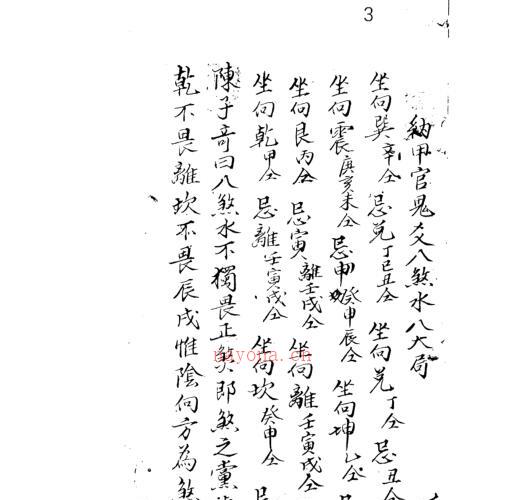 3
納甲官鬼爻八煞水八大局
坐向巽辛仝 忌兌丁巳丑仝 坐向兌丁仝 忌丑仝
坐向震庚亥未仝 忌申癸申辰仝 坐向坤乙仝 忌
坐向艮丙仝 忌寅離壬戌仝 坐向離壬寅戌仝
坐向乾甲仝 忌離壬寅戌仝 坐向坎癸申仝 忌
陳子奇曰八煞水不獨畏正煞即煞之黨
乾不畏離坎不畏辰戌惟陰向方為煞
nayona.cn